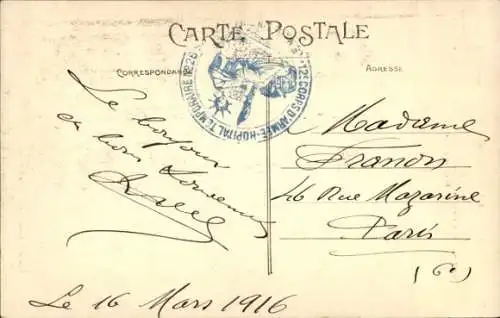 CARTE POSTALE
CORRESPONDANCE
ADRESSE
12e CORPS D'ARMÉE - HOPITAL TEMPORAIRE N° 25
Le bonjour
et bon souvenir
Madame
Franon
46 Rue Mazarine
Paris
(6e)
Le 16 Mars 1916